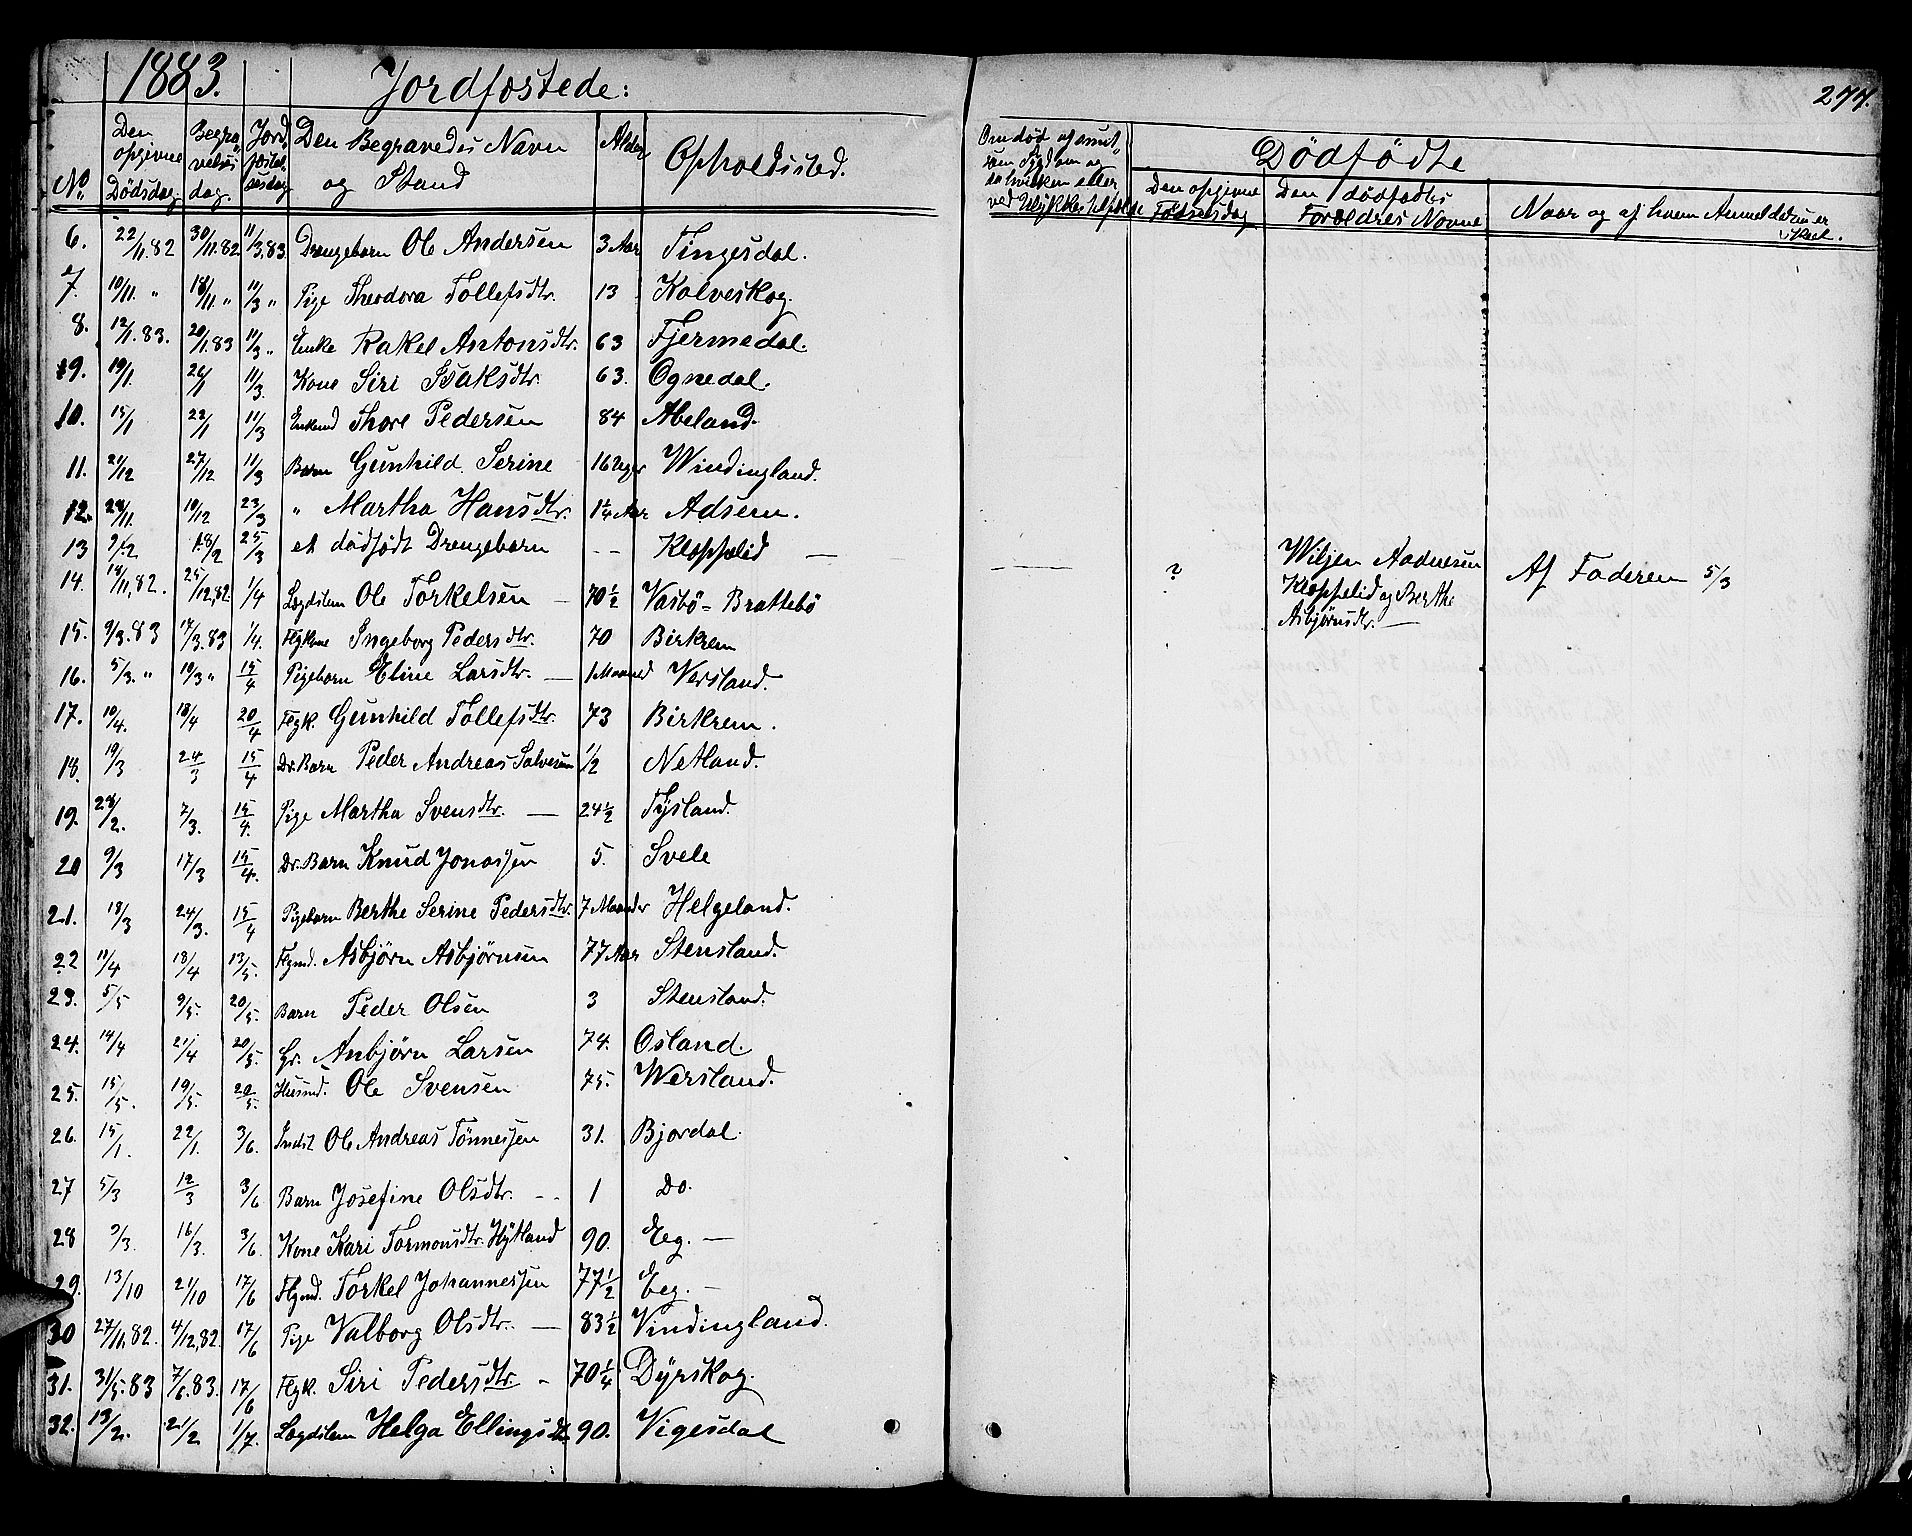 1883. Jordfæstede:
277.
No. Den opgivne Dødsdag. Begravelses dag. Jordfæstelsesdag Den Begravedes Navn og Stand Alder Opholdssted. Om død af smitsom Sygdom og da hvilken eller ved Ulykkestilfælde Dödfödte
Den opgivne Fødselsdag Den dødfødtes Forældres Navne Naar og af hvem Anmeldelsen er skeet.
6. 22/11.82 30/11.82 11/3.83 Drengebarn Ole Andersen 3 Aar Tingesdal.
7. 10/11. " 18/11 " 11/3 " Pige Theodora Tollefsdtr. 13 Kolveskog.
8. 12/1.83. 20/1.83 11/3 " Enke Rakel Antonsdtr. 63 Fjermedal.
9. 19/1. 26/1 11/3. Kone Siri Isaksdtr. 63. Ognedal.
10. 15/1 22/1 11/3 Enkemd Thore Pedersen 84 Abeland.
11. 21/12 27/12 11/3 Barn Gunhild Serine 16 Uger Windingland.
12. 28/11. 10/12 23/3 " Martha Hansdtr. 1¼ Aar Adsem.
13 9/12 18/2 25/3 et dödfödt Drengebarn -- Kloppelid —
— ? Wiljen Aadnesen Kloppelid og Berthe Asbjørnsdtr. — Af Faderen 5/3
14. 18/11,82. 25/12,82 1/4 Lægdslem Ole Torkelsen — 70½ Vasbö - Brattebö
15. 9/3.83 17/3.83 1/4. Flgkone Ingeborg Pedersdtr. 70 Birkrem
16. 5/3. " 10/3 " 15/4 Pigebarn Eline Larsdtr. — 1 Maaned Versland.
17. 10/4. 18/4 20/4 Flgk. Gunhild Tollefsdtr. 73 Birkrem.
18. 19/3 24/3 15/4 Dr. Barn Peder Andreas Salvesen ½ Netland.
19. 28/2. 7/3. 15/4. Pige Martha Svensdtr. — 24½ Tysland.
20 9/3 17/3 15/4. Dr. Barn Knud Jonassen 5. Svele
21. 18/3 24/3. 15/4 Pigebarn Berthe Serine Pedersdtr. 7 Maaneder Helgeland.
22 11/4 18/4 13/5. Flgmd. Asbjørn Asbjørnsen 77 Aar Stensland.
23. 5/5 9/5. 20/5. Barn Peder Olsen 3 Stensland.
24. 14/4 21/4 20/5. Gr. Anbjørn Larsen 74. Osland.
25. 15/5. 19/5. 20/5. Husmd. Ole Svensen 75. Wersland.
26. 15/1. 22/1. 3/6. Indst Ole Andreas Tönnessen 31. Bjordal.
27 5/3 12/3 3/6 Barn Josefine Olsdtr. -- 1 Do.
28 9/3. 16/3. 3/6. Kone Kari Tormonsdtr. Hÿtland 90. Eeg. —
29. 13/10 21/10 17/6 Flgmd. Torkel Johannessen 77½ Eeg. —
30 27/11,82. 4/12,82 17/6 Pige Valborg Olsdtr. — 83½ Vindingland.
31. 31/5.83 7/6.83. 17/6 Flgk. Siri Pedersdtr. - 70¼ Dÿrskog.
32. 13/2. 21/2 1/7. Lægdslem Helga Ellingsdtr. 90. Vigesdal